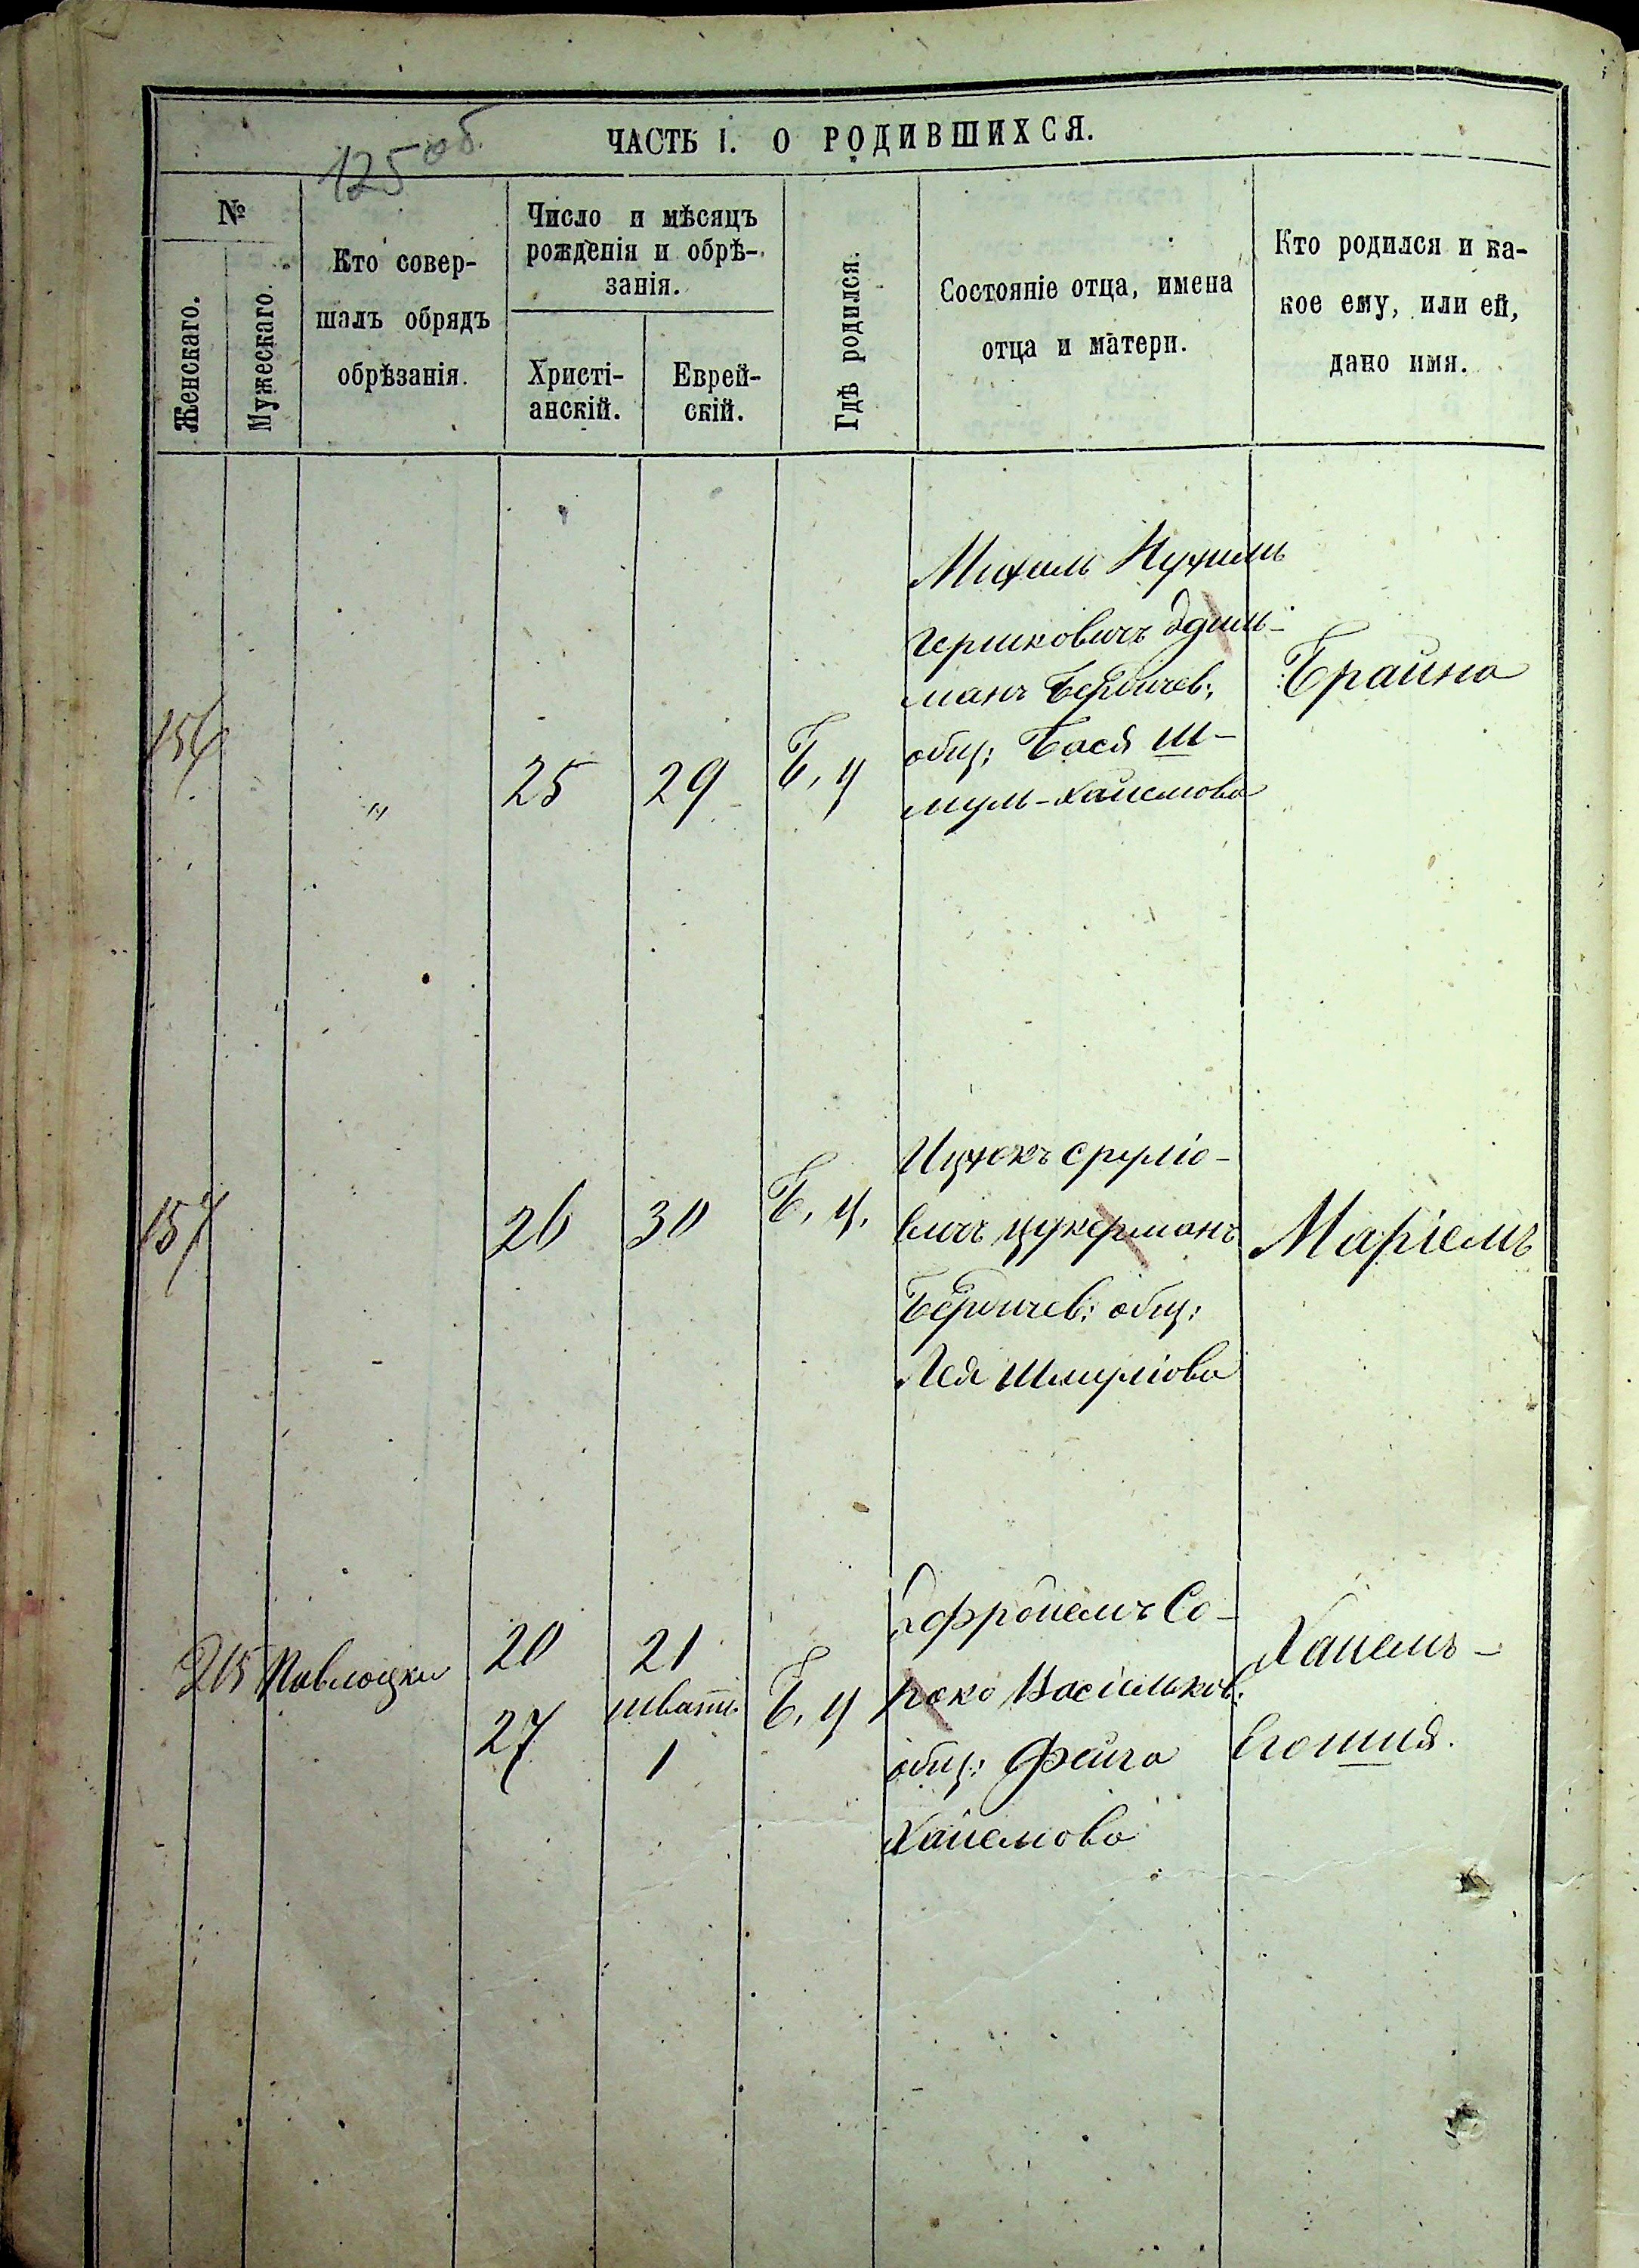 125 об.
ЧАСТЬ I. О РОДИВШИХСЯ.
№
Женскаго.
Мужескаго.
Кто совер-
шалъ обрядъ
обрѣзанія.
Число и мѣсяцъ
рожденія и обрѣ-
занія.
Христі-
анскій.
Еврей-
скій.
Гдѣ родился.
Состояніе отца, имена
отца и матери.
Кто родился и ка-
кое ему, или ей,
дано имя.
156
"
25
29
Б, ц
Михель Нухимъ
Гершковичъ Эдель-
манъ Бердичев:
общ: Бася Ш-
муль-Хаиемова
Браина
157
26
30
Б, ц,
Ицхокъ Срулiо-
вичъ Цукерманъ
Бердичев: общ:
Лея Шмулiова
Марiемъ
215
Паволоцки
20
27
21
шватъ
1
Б, ц
Эфроиемъ Со-
роко Васильков:
общ: Фейга
Хаиемова
Хаиемъ-
Егошия.